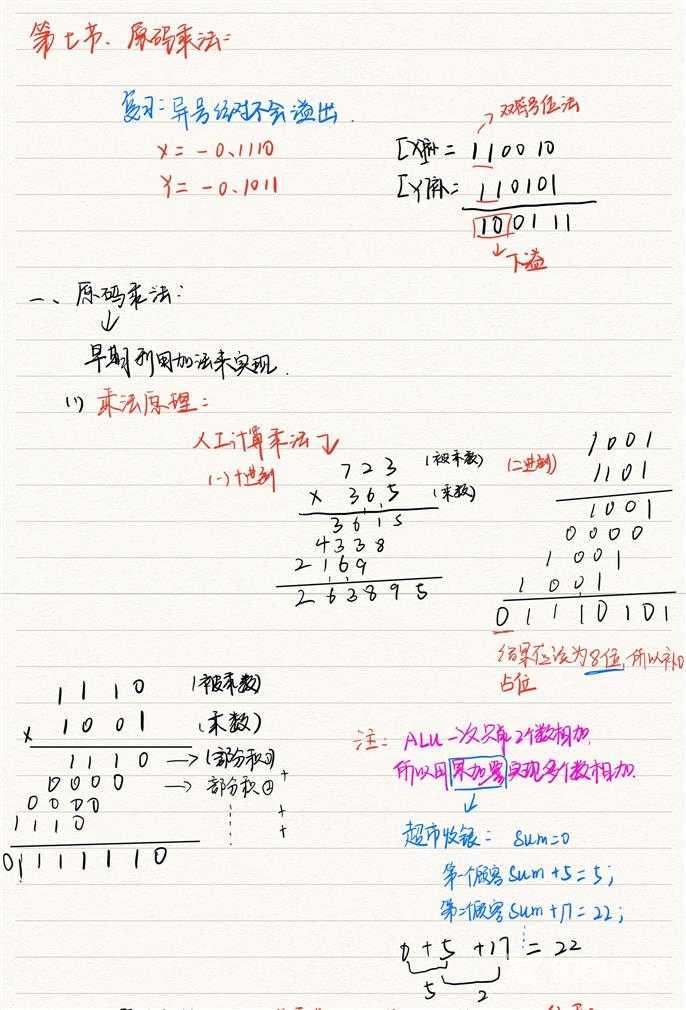 第七节、原码乘法:
复习:异号绝对不会溢出.
→双符号位法
X = -0.1110
[X]补 = 110010
Y = -0.1011
[Y]补 = 110101
100111
↓
下溢
一、原码乘法:
↓
早期利用加法来实现.
(1) 乘法原理:
人工计算乘法↴
(一)十进制
723 (被乘数)
× 365 (乘数)
3615
4338
2169
263895
(二进制)
1001
1101
1001
0000
1001
1001
01110101
结果应该为8位,所以补0
占位
1110 (被乘数)
× 1001 (乘数)
1110 → (部分积①
0000 → 部分积② +
0000 +
1110 +
01111110
注: ALU一次只能2个数相加,
所以用累加器实现多个数相加.
↓
超市收银: Sum=0
第一个顾客 Sum+5=5;
第二个顾客 Sum+17=22;
0+5+17=22
5 2